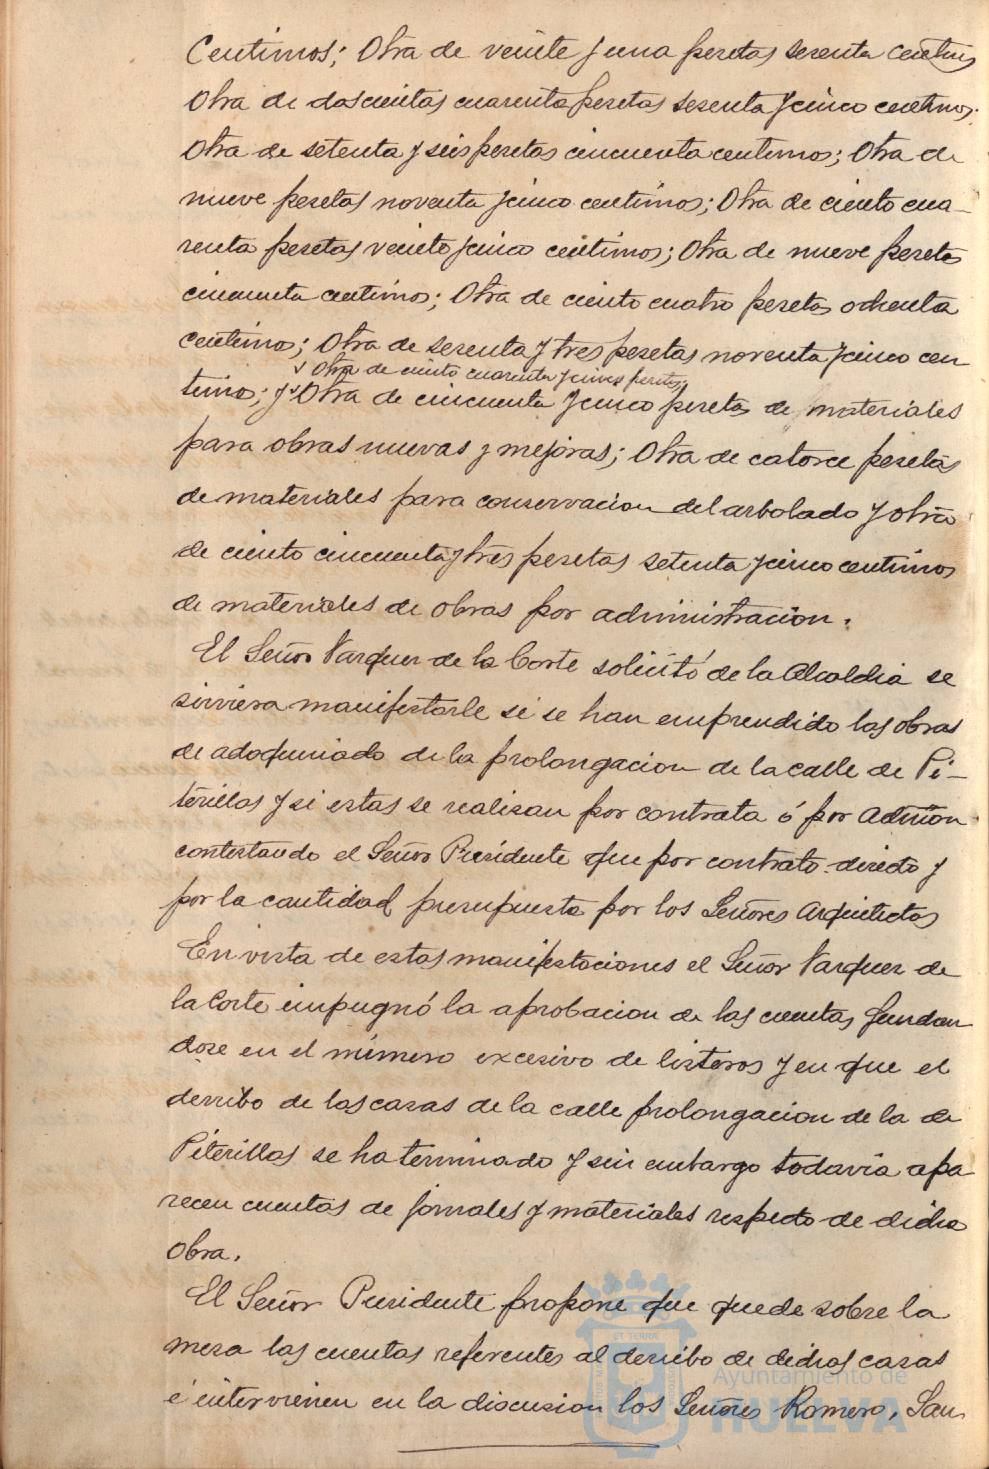 Centimos; Otra de veinte y una pesetas sesenta centims
Otra de doscientas cuarenta pesetas sesenta y cinco centimos;
Otra de setenta y seis pesetas cincuenta centimos; Otra de
nueve pesetas noventa y cinco centimos; Otra de ciento cua-
renta pesetas veinte y cinco centimos; Otra de nueve pesetas
cincuenta centimos; Otra de ciento cuatro pesetas ochenta
centimos; Otra de sesenta y tres pesetas noventa y cinco cen
√ Otra de ciento cuarenta y cinco pesetas
timos; y √ Otra de cincuenta y cinco pesetas de materiales
para obras nuevas y mejoras; Otra de catorce pesetas
de materiales para conservacion del arbolado y otra
de ciento cincuenta y tres pesetas setenta y cinco centimos
de materiales de obras por administracion.
El Señor Vazquez de la Corte solicitó de la Alcaldia se
sirviera manifestarle si se han emprendido las obras
de adoquinado de la prolongacion de la calle de Pi-
terillas y si estas se realizan por contrata ó por admon
contestando el Señor Presidente que por contrato directo y
por la cantidad presupuesta por los Señores Arquitectos
En vista de estas manifestaciones el Señor Vazquez de
la Corte impugnó la aprobacion de las cuentas fundan
dose en el número excesivo de listeros y en que el
derribo de las casas de la calle prolongacion de la de
Piterillas se ha terminado y sin embargo todavia apa
recen cuentas de jornales y materiales respecto de dicha
obra.
El Señor Presidente propone que quede sobre la
mesa las cuentas referentes al derribo de dichas casas
é intervienen en la discusion los Señores Romero, San
Ayuntamiento de
HUELVA